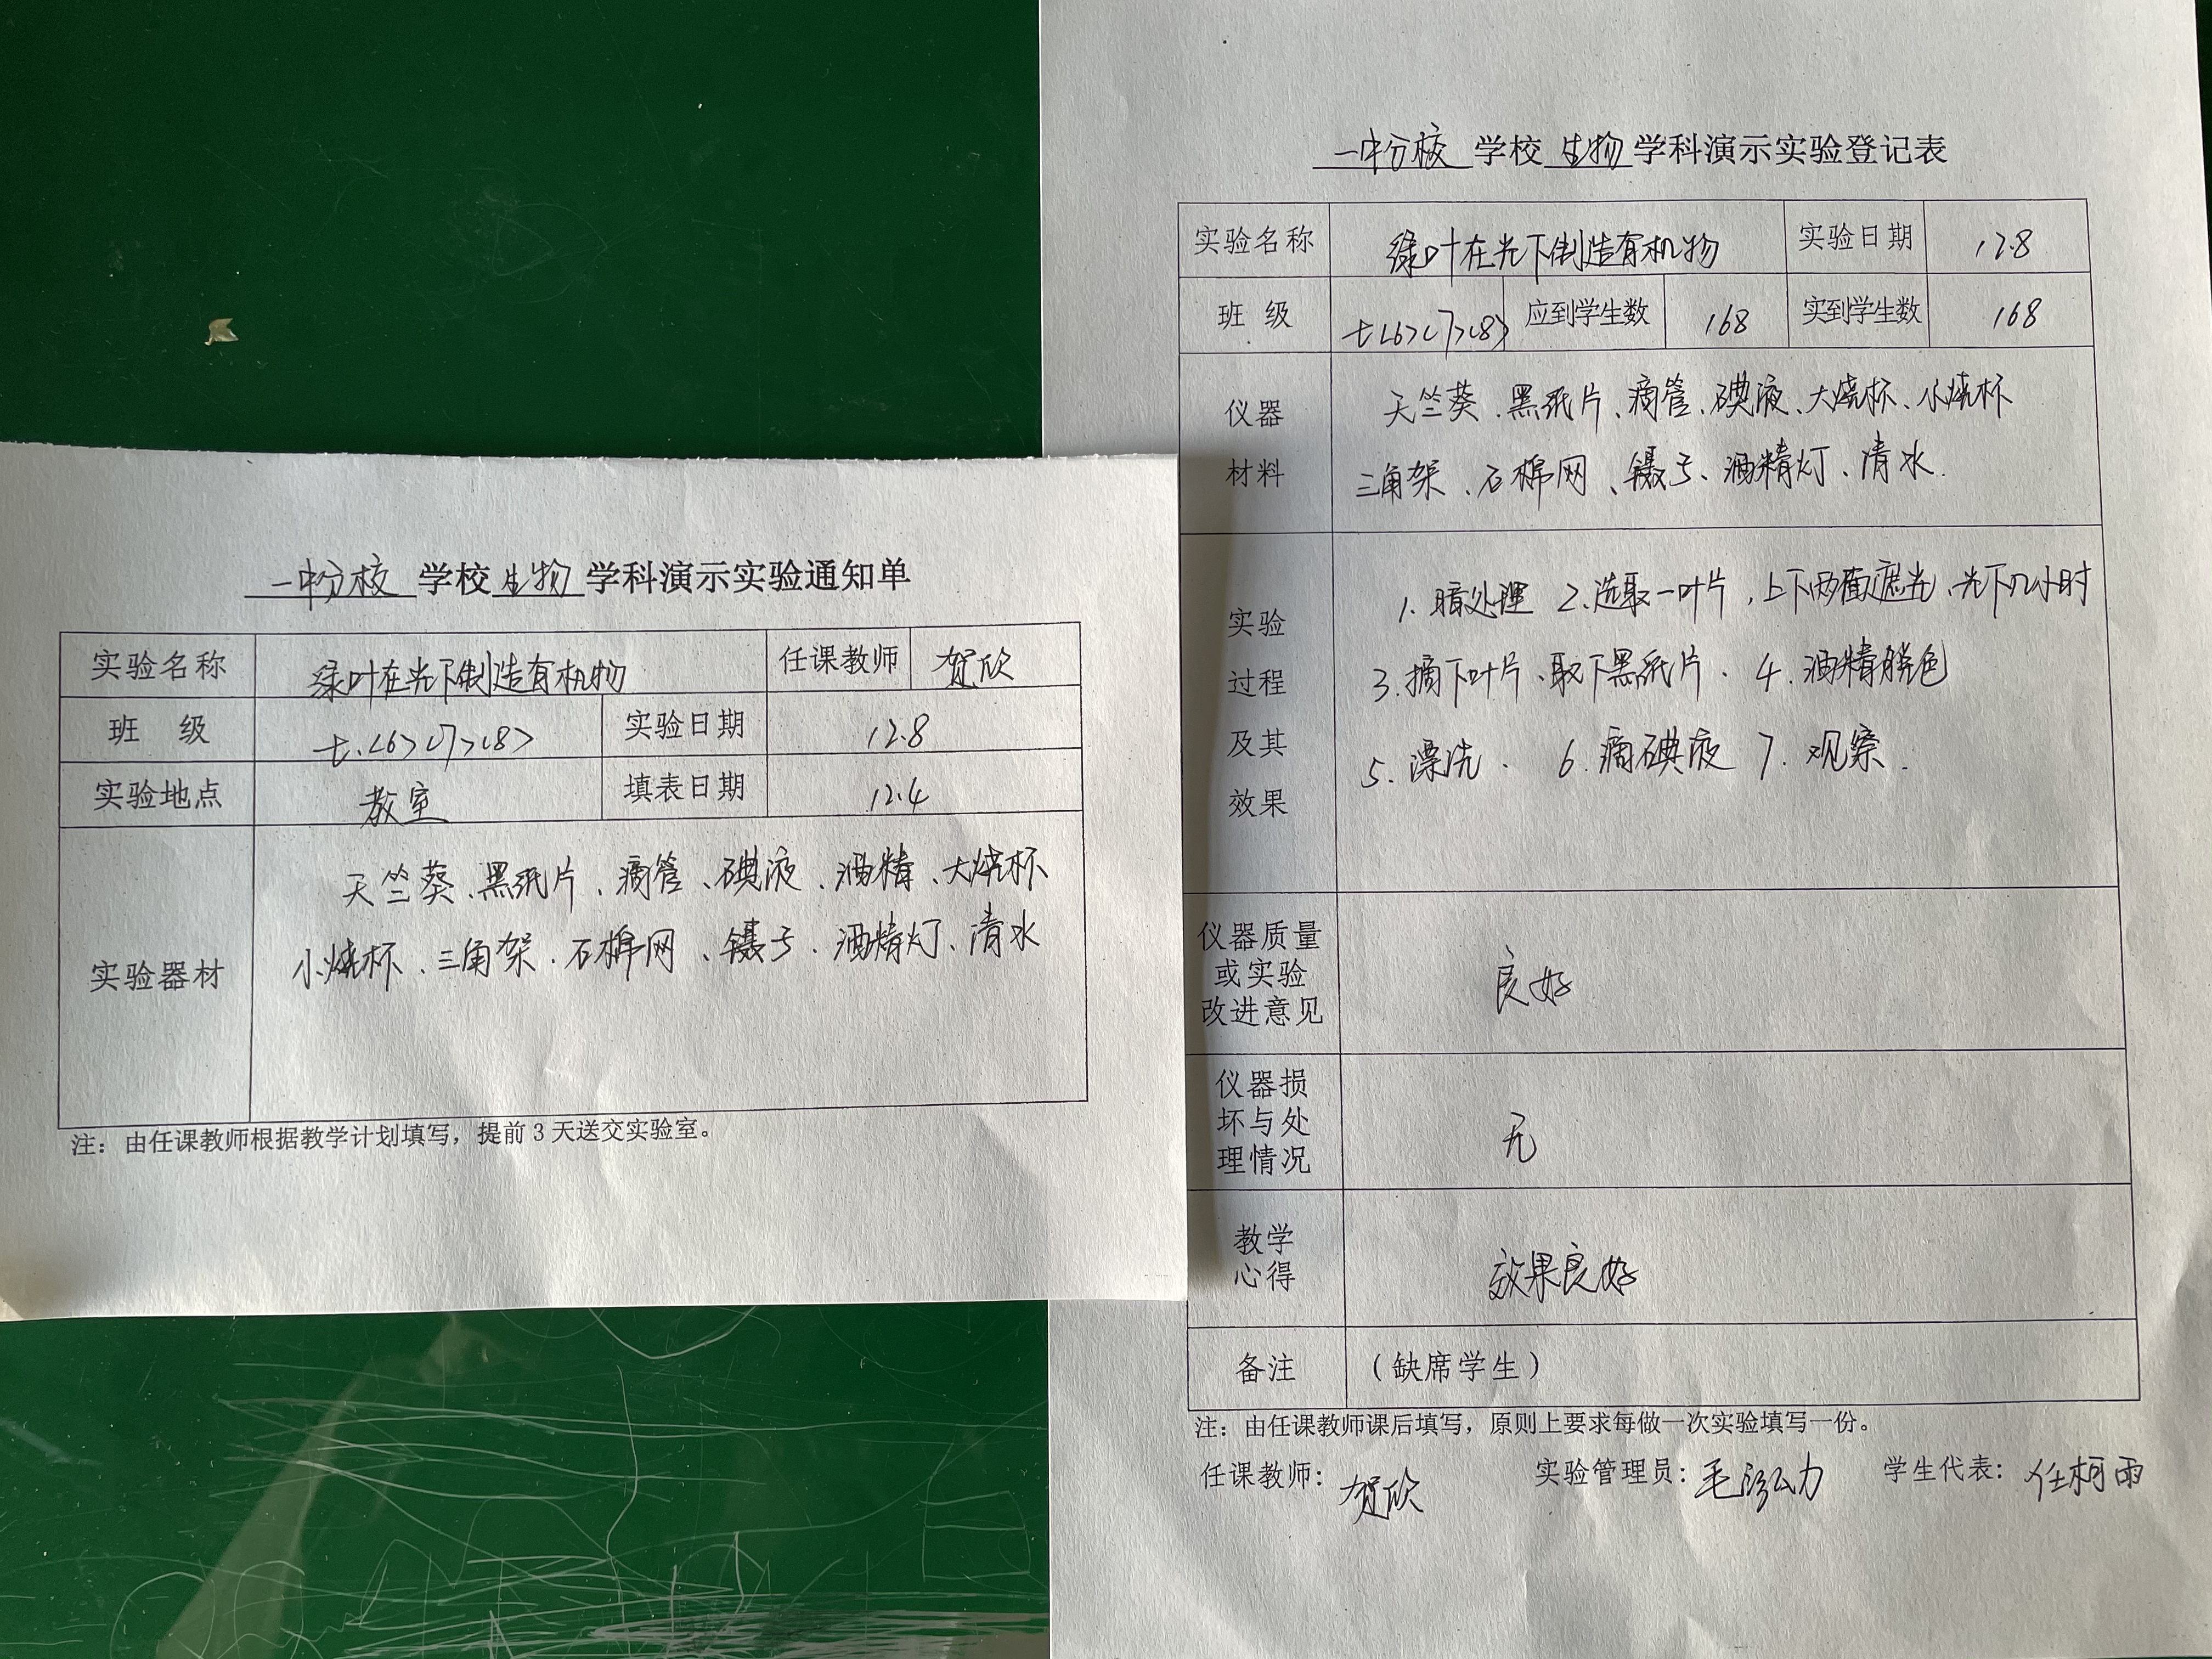 一中分校 学校 生物 学科演示实验通知单
实验名称 绿叶在光下制造有机物 任课教师 贺欣
班 级 七.<6><7><8> 实验日期 12.8
实验地点 教室 填表日期 12.4
实验器材
天竺葵、黑纸片、滴管、碘液、酒精、大烧杯
小烧杯、三角架、石棉网、镊子、酒精灯、清水
注：由任课教师根据教学计划填写，提前3天送交实验室。
一中分校 学校 生物 学科演示实验登记表
实验名称 绿叶在光下制造有机物 实验日期 12.8
班 级 七<6><7><8> 应到学生数 168 实到学生数 168
仪器
材料
天竺葵、黑纸片、滴管、碘液、大烧杯、小烧杯
三角架、石棉网、镊子、酒精灯、清水.
实验
过程
及其
效果
1. 暗处理 2. 选取一叶片，上下两面遮光、光下几小时
3. 摘下叶片、取下黑纸片. 4. 酒精脱色
5. 漂洗. 6. 滴碘液 7. 观察.
仪器质量
或实验
改进意见
良好
仪器损
坏与处
理情况
无
教学
心得
效果良好
备注 （缺席学生）
注：由任课教师课后填写，原则上要求每做一次实验填写一份。
任课教师：贺欣 实验管理员： 学生代表：任柯雨